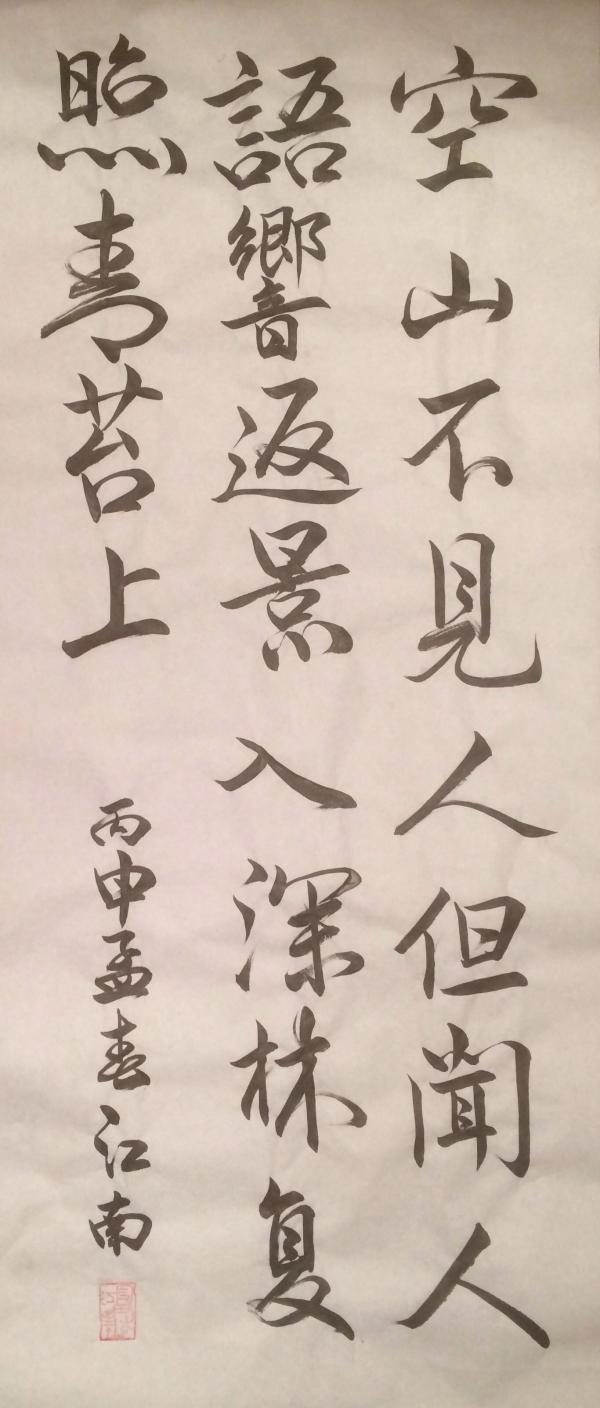 空山不見人但聞人
語響返景入深林复
照青苔上
丙申孟春江南